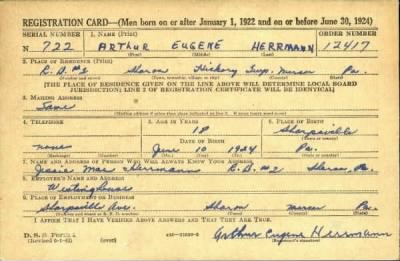 REGISTRATION CARD—(Men born on or after January 1, 1922 and on or before June 30, 1924)
SERIAL NUMBER 1. NAME (Print) ORDER NUMBER
N 722 ARTHUR EUGENE HERRMANN 12417
(First) (Middle) (Last)
2. PLACE OF RESIDENCE (Print)
R. D. #2 Sharon Hickory Twp. Mercer Pa.
(Number and street) (Town, township, village, or city) (County) (State)
[THE PLACE OF RESIDENCE GIVEN ON THE LINE ABOVE WILL DETERMINE LOCAL BOARD
JURISDICTION; LINE 2 OF REGISTRATION CERTIFICATE WILL BE IDENTICAL]
3. MAILING ADDRESS
Same
[Mailing address if other than place indicated on line 2. If same insert word same]
4. TELEPHONE 5. AGE IN YEARS 6. PLACE OF BIRTH
18 Sharpsville
none DATE OF BIRTH
June 10 1924 Pa.
(Exchange) (Number) (Mo.) (Day) (Yr.) (State or country)
7. NAME AND ADDRESS OF PERSON WHO WILL ALWAYS KNOW YOUR ADDRESS
Jessie Mae Herrmann R. D. #2 Sharon, Pa.
8. EMPLOYER'S NAME AND ADDRESS
Westinghouse
9. PLACE OF EMPLOYMENT OR BUSINESS
Sharpsville Ave. Sharon Mercer Pa.
(Number and street or R. F. D. number) (Town) (County) (State)
I AFFIRM THAT I HAVE VERIFIED ABOVE ANSWERS AND THAT THEY ARE TRUE.
D. S. S. Form 1
(Revised 6-1-42) (over) Arthur Eugene Herrmann